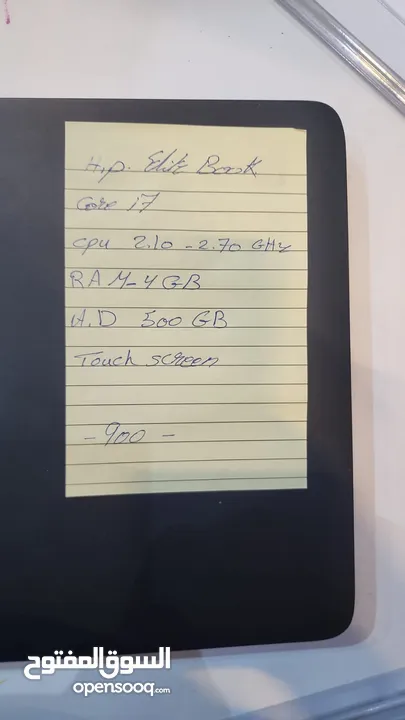 H.p. Elite Book
Core i7
cpu 2.10 - 2.70 GHz
RAM-4GB
H.D 500 GB
Touch screen
- 900 -
السوق المفتوح
opensooq.com